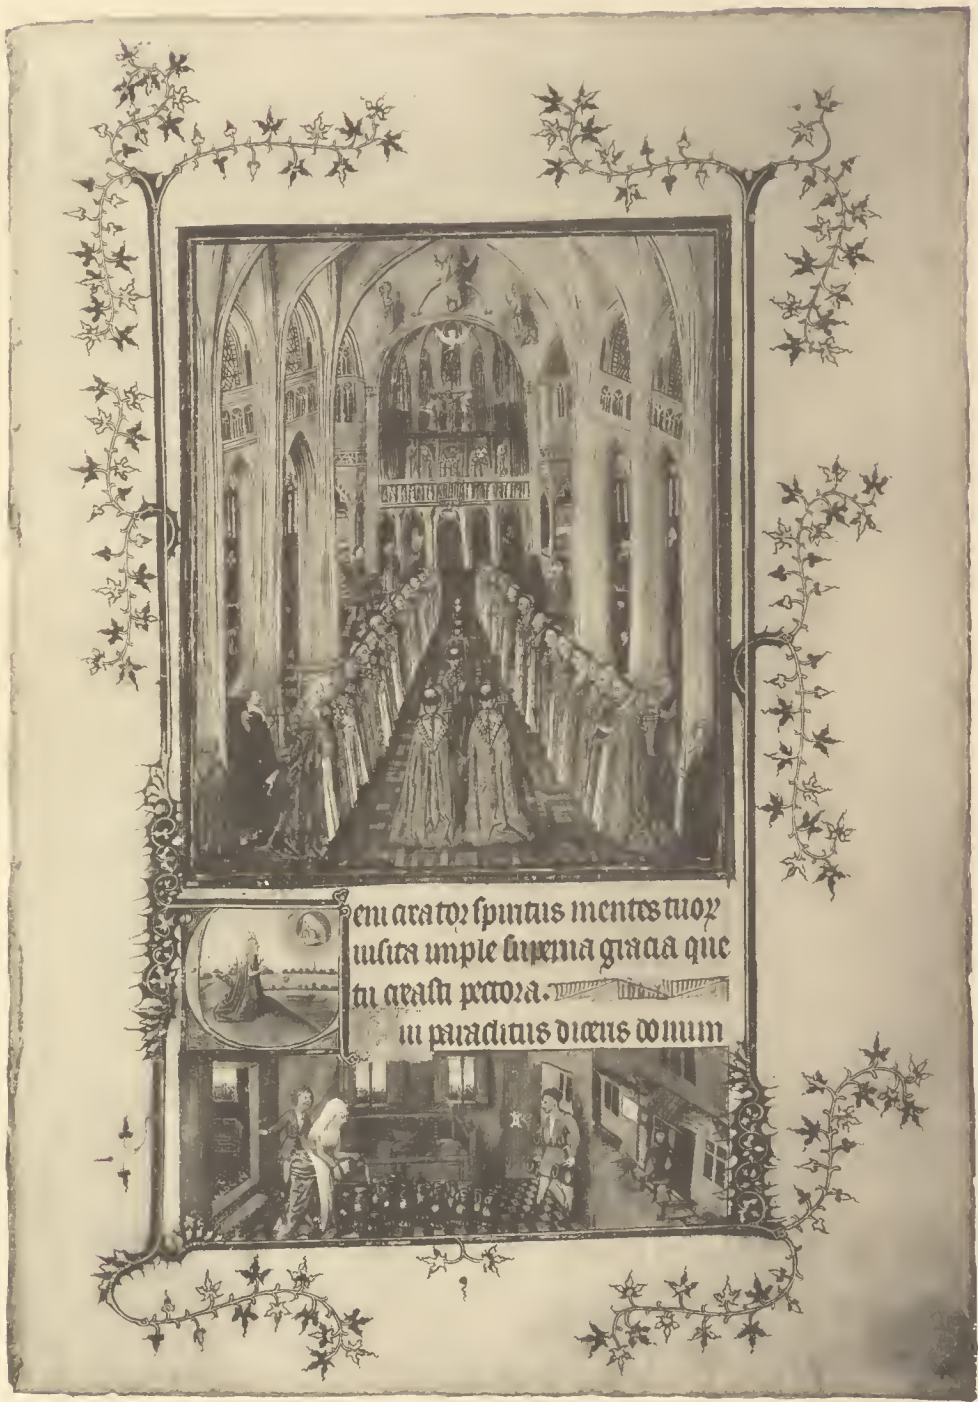 eni creator spiritus mentes tuoꝝ
uisita imple superna gracia que
tu creasti pectora.
ui paraclitus diceris donum